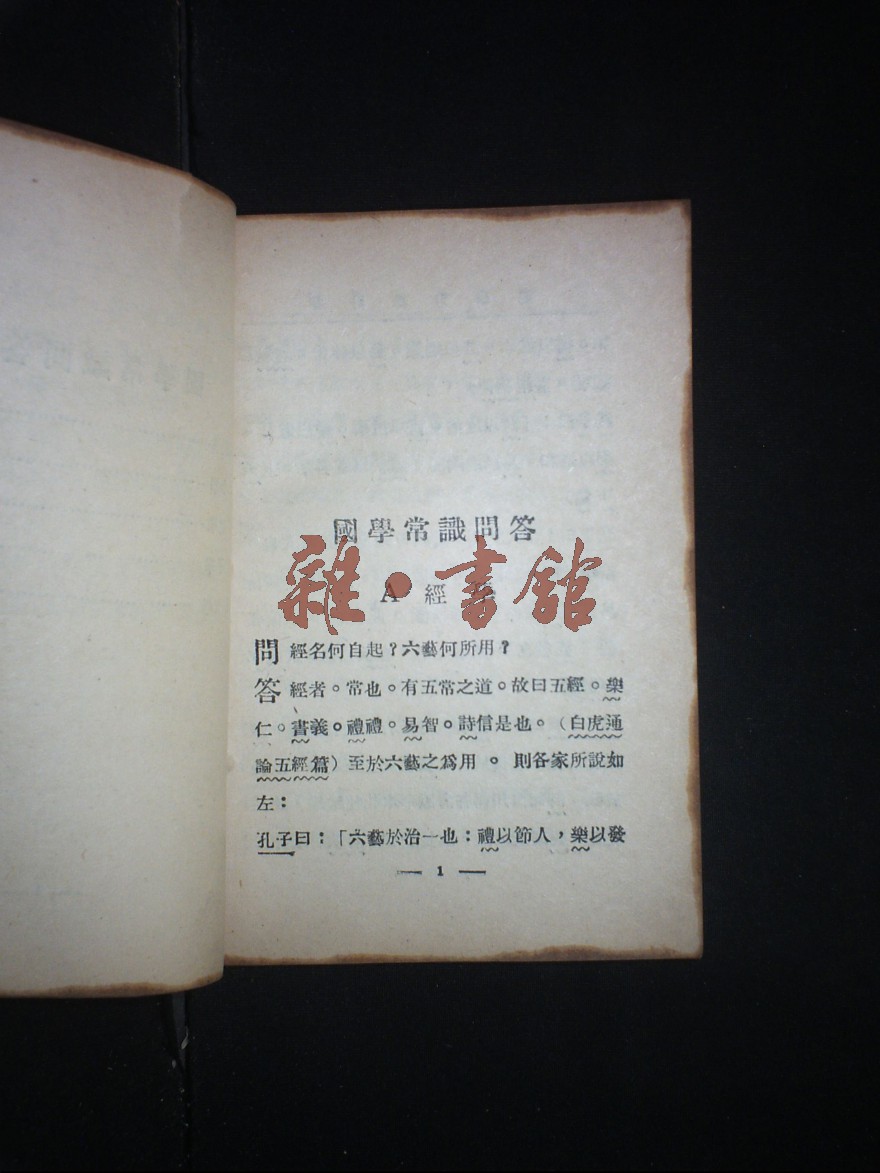 國學常識問答
雜·書館
A 經學
問 經名何自起?六藝何所用?
答 經者。常也。有五常之道。故曰五經。樂
仁。書義。禮禮。易智。詩信是也。(白虎通
論五經篇)至於六藝之爲用。則各家所說如
左:
孔子曰:「六藝於治一也:禮以節人,樂以發
— 1 —